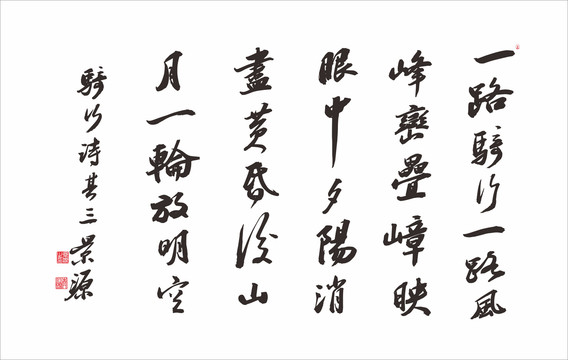 一路騎行一路風
峰巒疊嶂映
眼中夕陽消
盡黄昏後山
月一輪放明空
騎行詩其三 景源